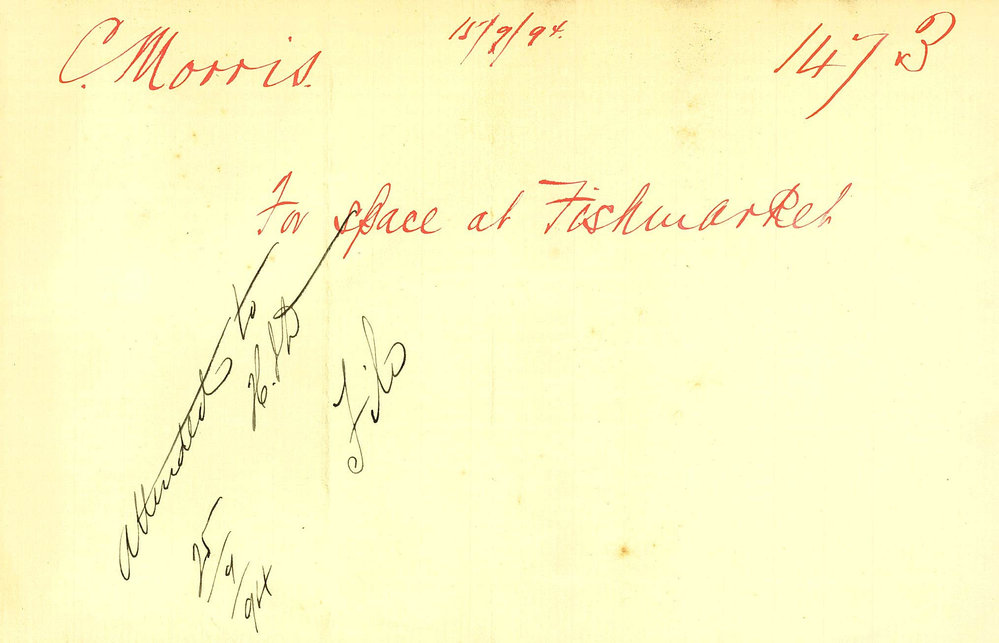 C. Morris. 15/9/94. 1473
For space at Fishmarket
Attended to
25/9/94
File